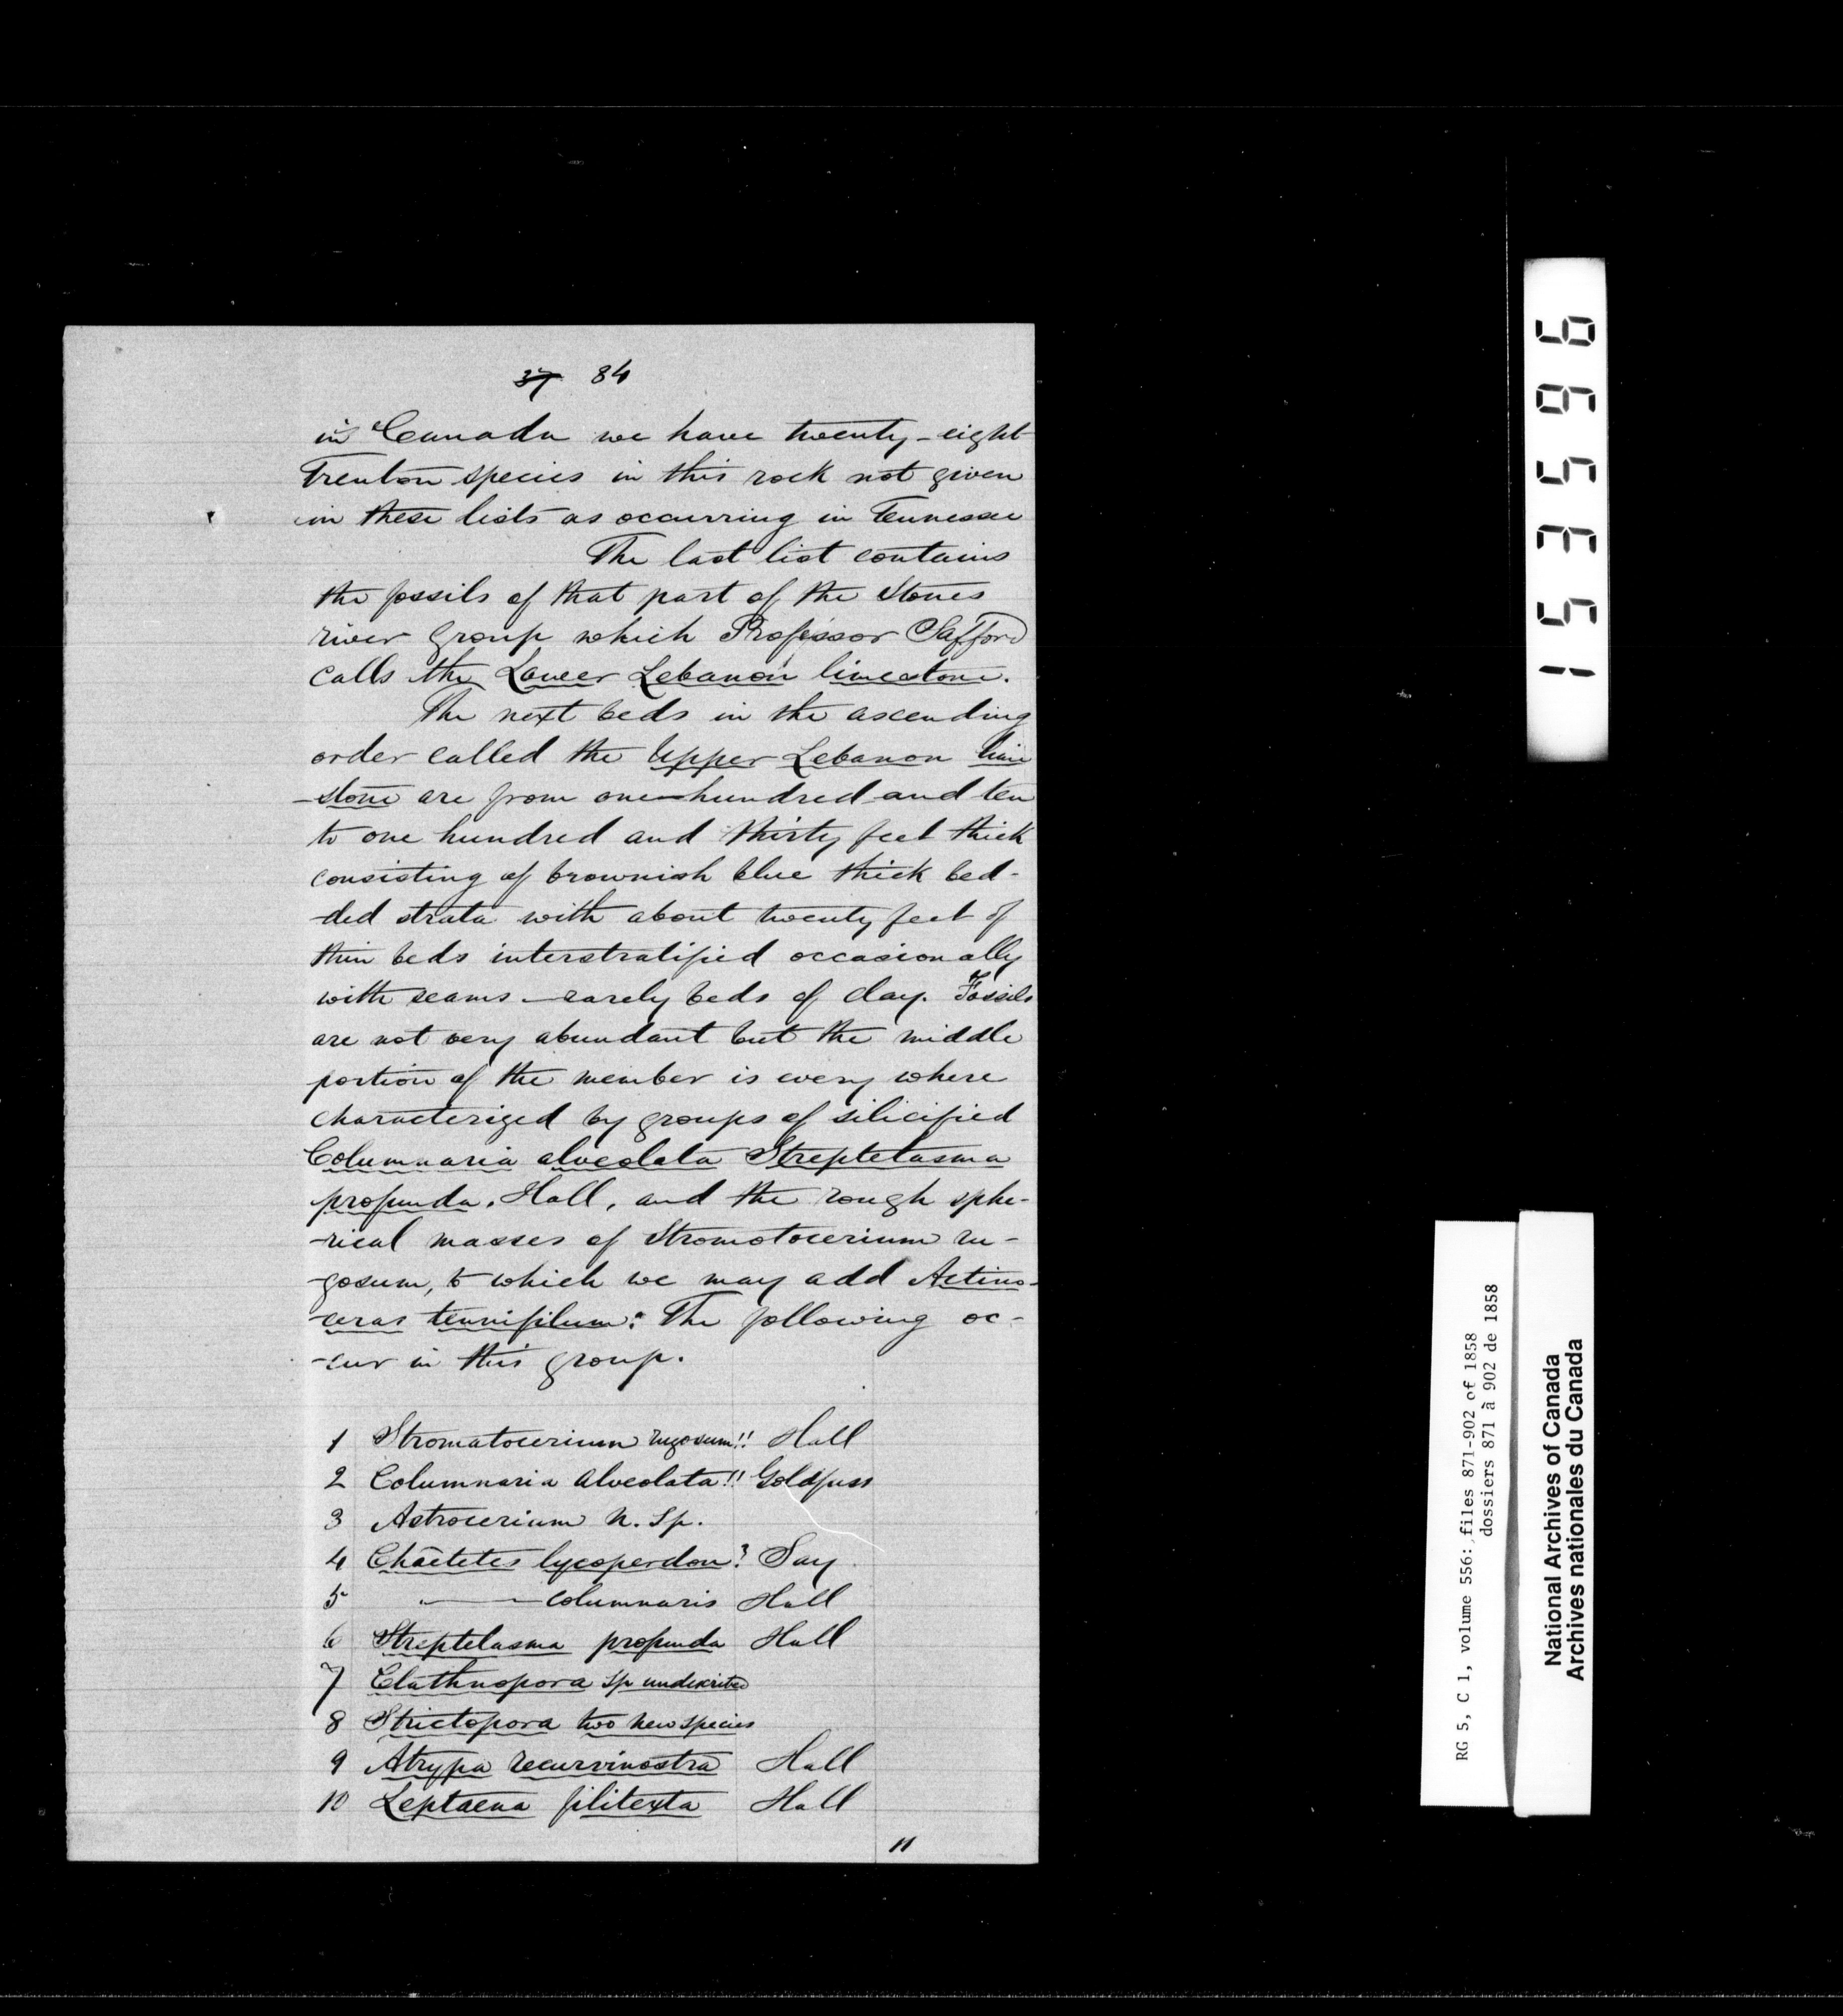 37 84
in Canada we have twenty-eight
Trenton species in this rock not given
in these lists as occurring in Tennessee
The last list contains
the fossils of that part of the Stones
river Group which Professor Safford
calls the Lower Lebanon limestone.
The next beds in the ascending
order called the Upper Lebanon lime
-stone are from one hundred and ten
to one hundred and thirty feet thick
consisting of brownish blue thick bed-
-ded strata with about twenty feet of
thin beds interstratified occasionally
with seams - rarely beds of clay. Fossils
are not very abundant but the middle
portion of the member is every where
characterized by groups of silicified
Columnaria alveolata Streptelasma
profunda. Hall, and the rough sphe-
-rical masses of Stromotocerium ru-
-gosum, to which we may add Actino-
-ceras tenuifilum: The following oc-
-cur in this group.
1 Stromatocerium rugosum!! Hall
2 Columnaria alveolata!! Goldfuss
3 Astrocerium N. Sp.
4 Chaetetes lycoperdon? Say
5 " — columnaris Hall
6 Streptelasma profunda Hall
7 Clathropora sp undescribed
8 Strictopora two new species
9 Atrypa recurvirostra Hall
10 Leptaena filitexta Hall
11
153596
RG 5, C 1, volume 556: files 871-902 of 1858
dossiers 871 à 902 de 1858
National Archives of Canada
Archives nationales du Canada